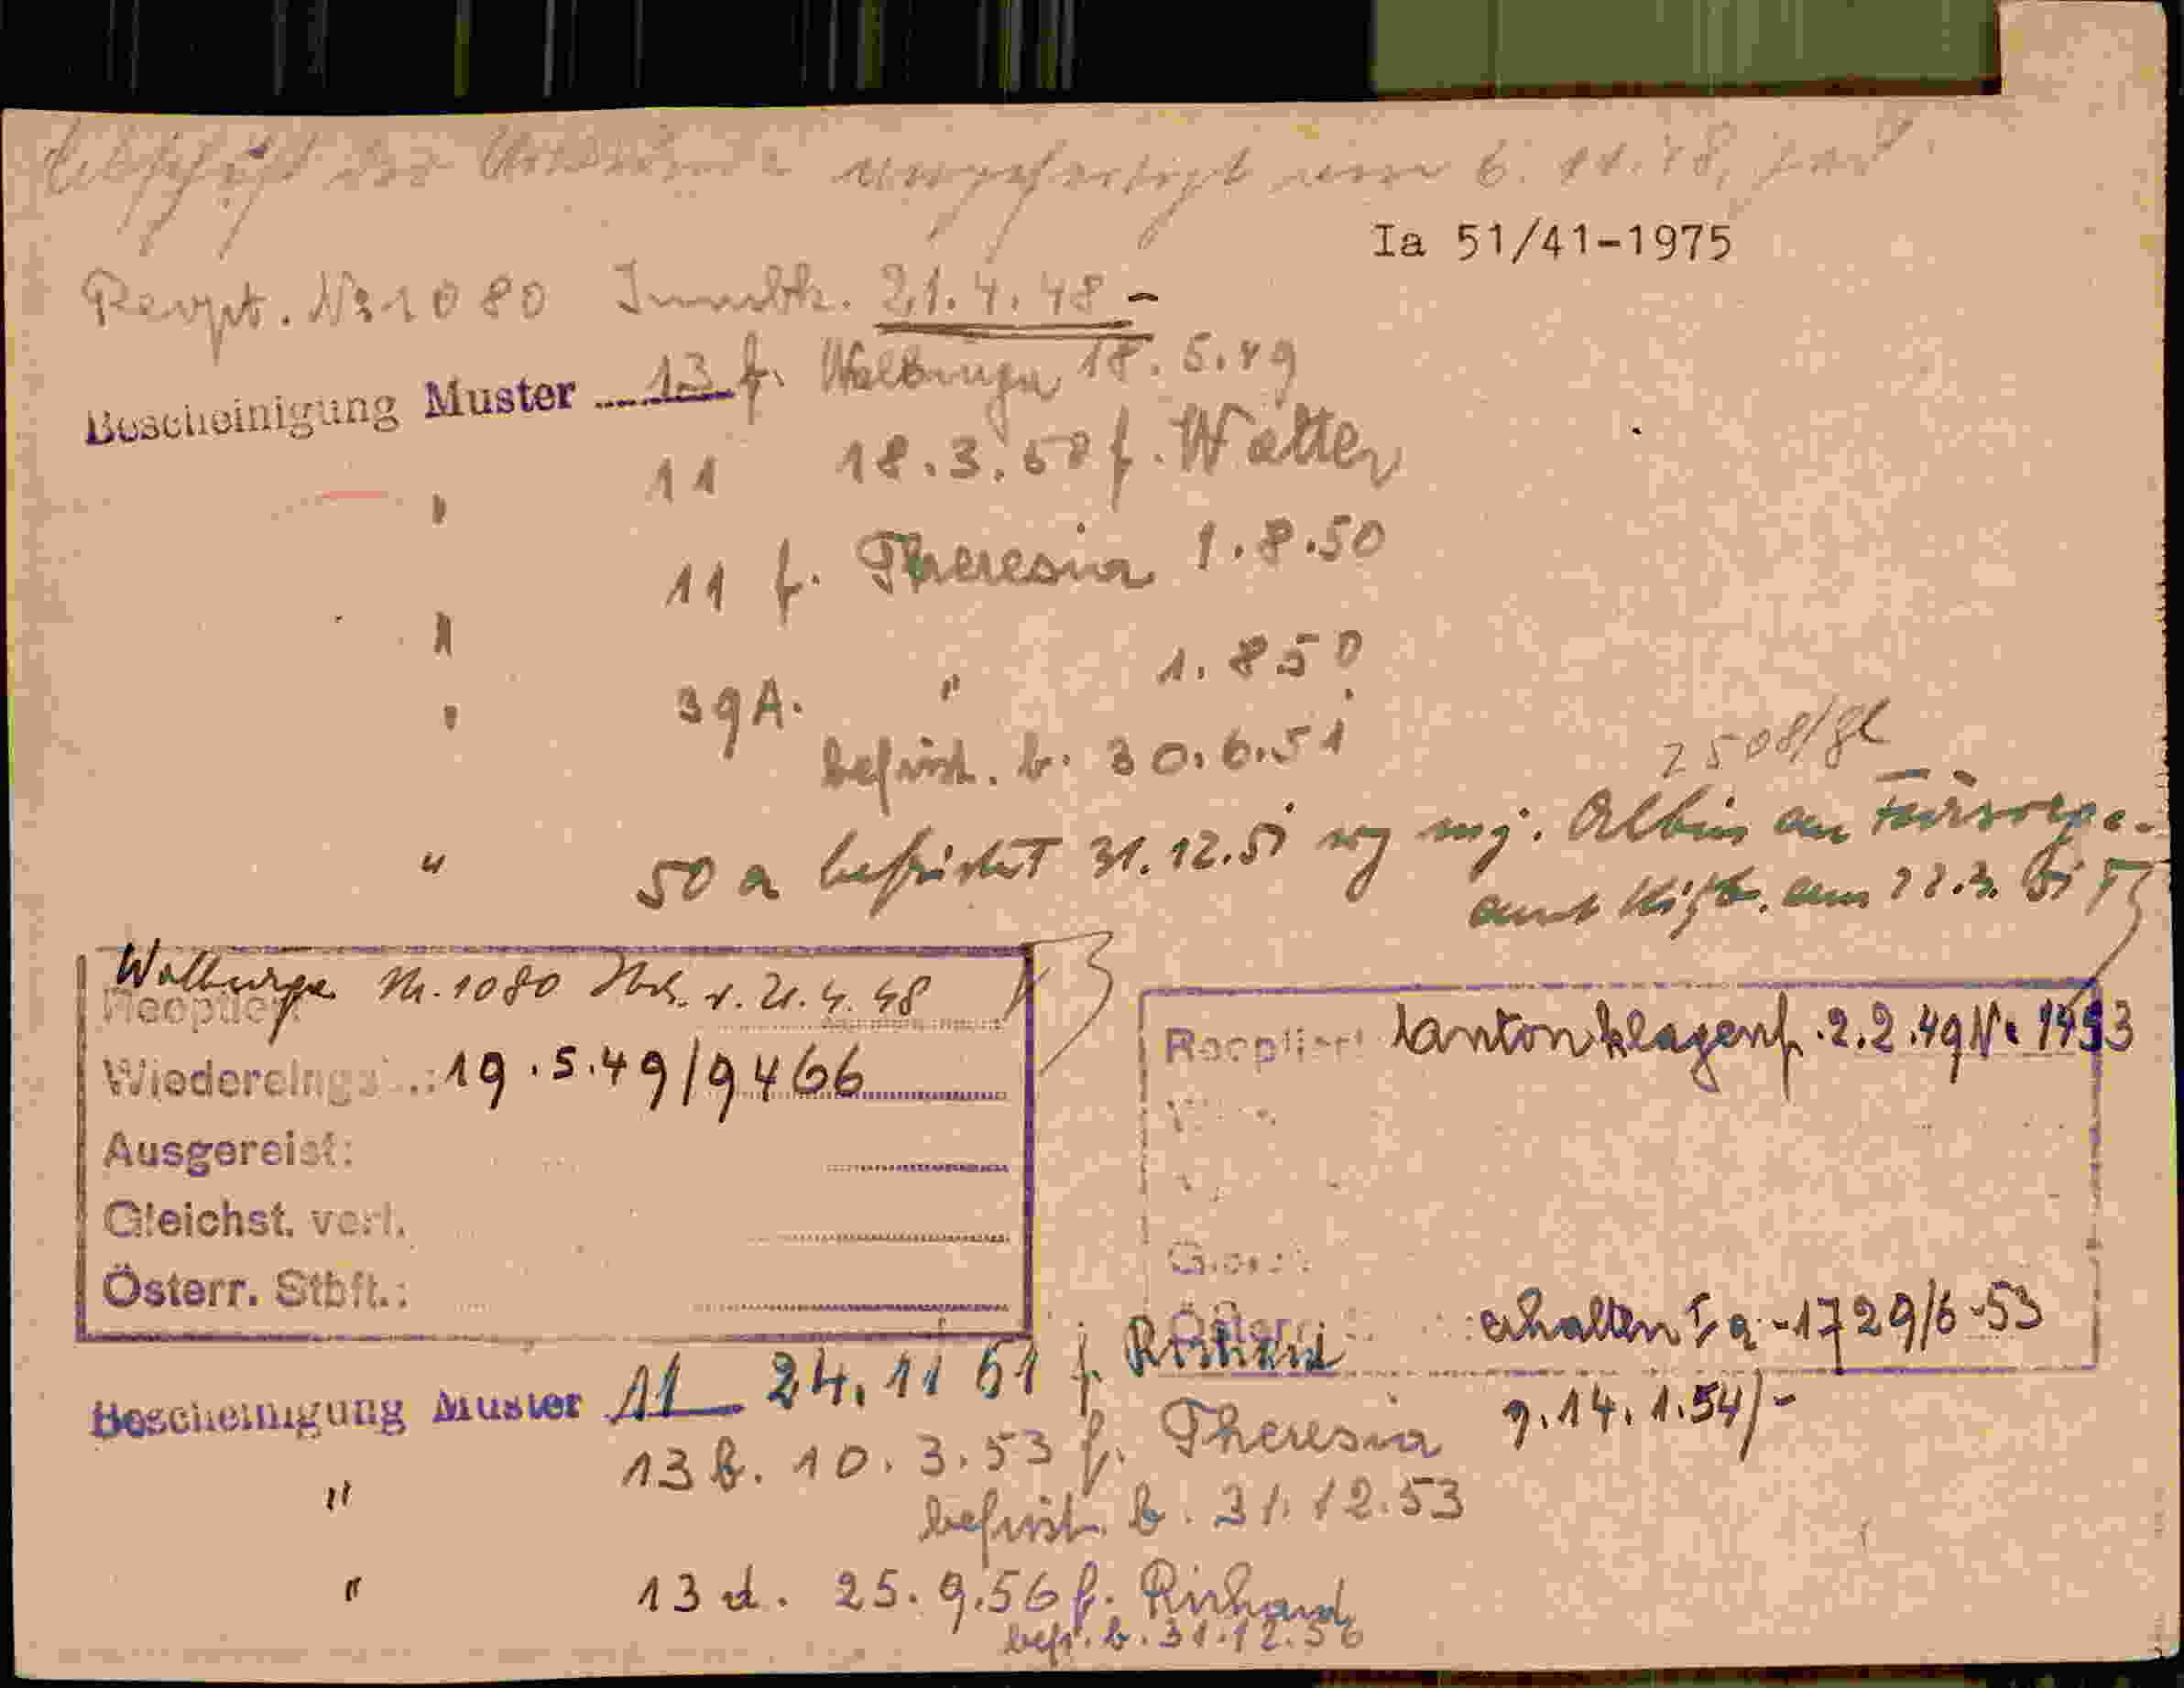 Abschrift der Urkunde ausgefertigt am 6. 11. 48,
Ia 51/41-1975
Reopt. Nr 1080 Innsbk. 21.4.48 -
Bescheinigung Muster 13 f. Walburga 18.5.49
" 11 18.3.50 f. Walter
" 11 f. Theresia 1.8.50
" 39A. " 1.8 50
befrist. b. 30.6.51
2508/
" 50 a befristet 31.12.51 mj. Albin an Fürsorge-
amt Kitzb. am 22.3. 51
Walburga Nr. 1080 Ibk. v. 21.4.48
Reoptiert
Wiedereingeb.: 19.5.49/9466
Ausgereist:
Gleichst. verl.
Österr. Stbft.:
Reoptiert Kanton Klagenf. 2.2.49 Nr 1493
Österr. erhalten Ia-1729/6-53
9.14.1.54/-
Bescheinigung Muster 11 24.11 51 f. Richard
" 13 b. 10.3.53 f. Theresia
befrist. b. 31.12.53
" 13 d. 25.9.56 f. Richard
befr. b. 31.12.56